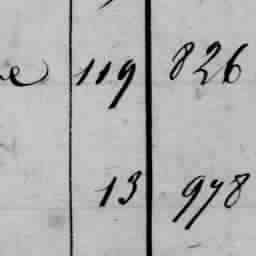 e 119 826
13 978